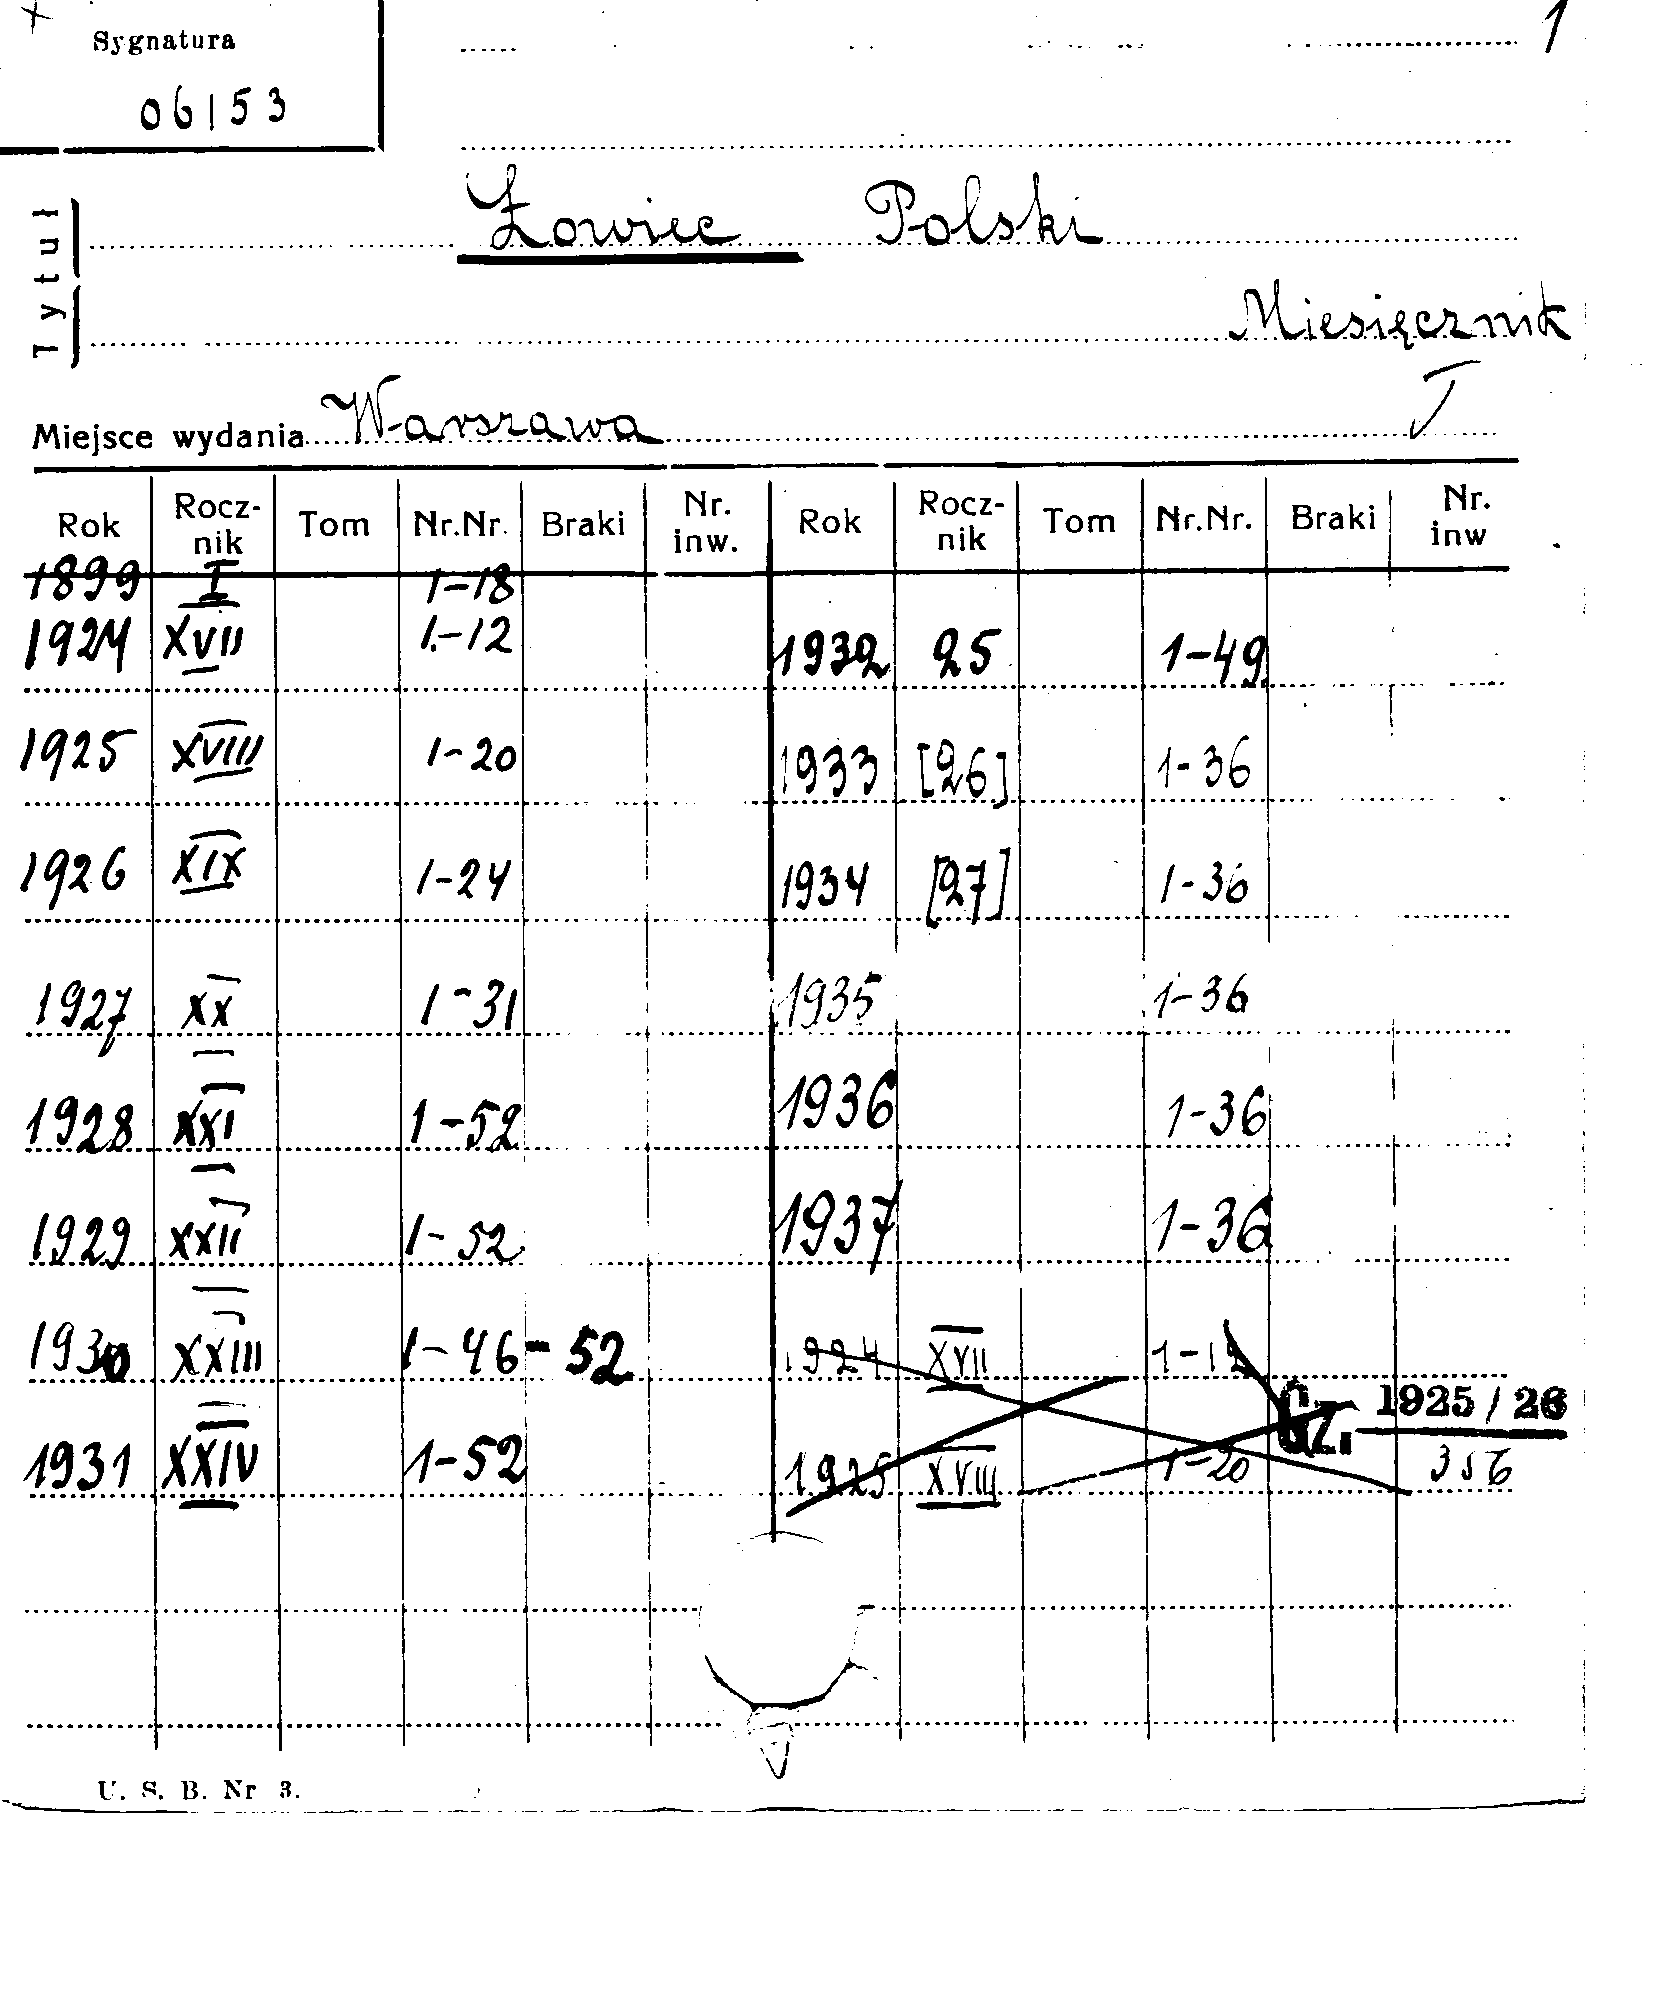 Sygnatura 1
06153
Tytuł
Łowiec Polski
Miesięcznik
Miejsce wydania Warszawa
Rok Rocz-nik Tom Nr.Nr. Braki Nr. inw. Rok Rocz-nik Tom Nr.Nr. Braki Nr. inw
1899 I 1-18
1924 XVII 1-12 1932 25 1-49
1925 XVIII 1-20 1933 [26] 1-36
1926 XIX 1-24 1934 [27] 1-36
1927 XX 1-31 1935 1-36
1928 XXI 1-52 1936 1-36
1929 XXII 1-52 1937 1-36
1930 XXIII 1-46-52 1924 XVII 1-12
Cz. 1925/26
1931 XXIV 1-52 1925 XVIII 1-20 356
U. S. B. Nr 3.